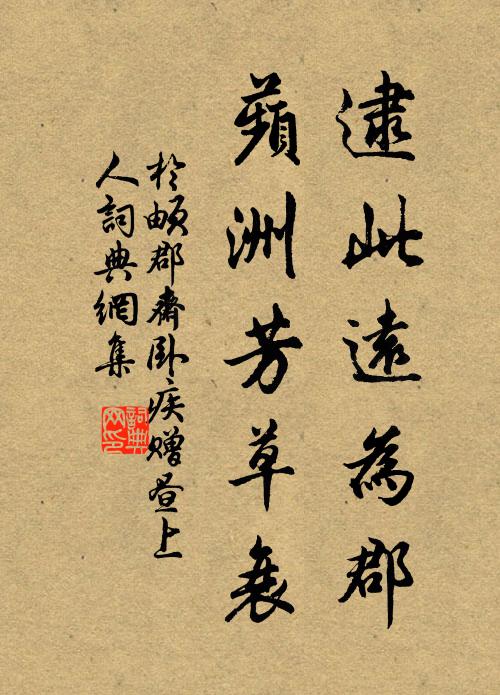 逮此遠為郡
蘋洲芳草衰
於頔郡齋臥疾贈晝上
人詞典網集
詞典
网印